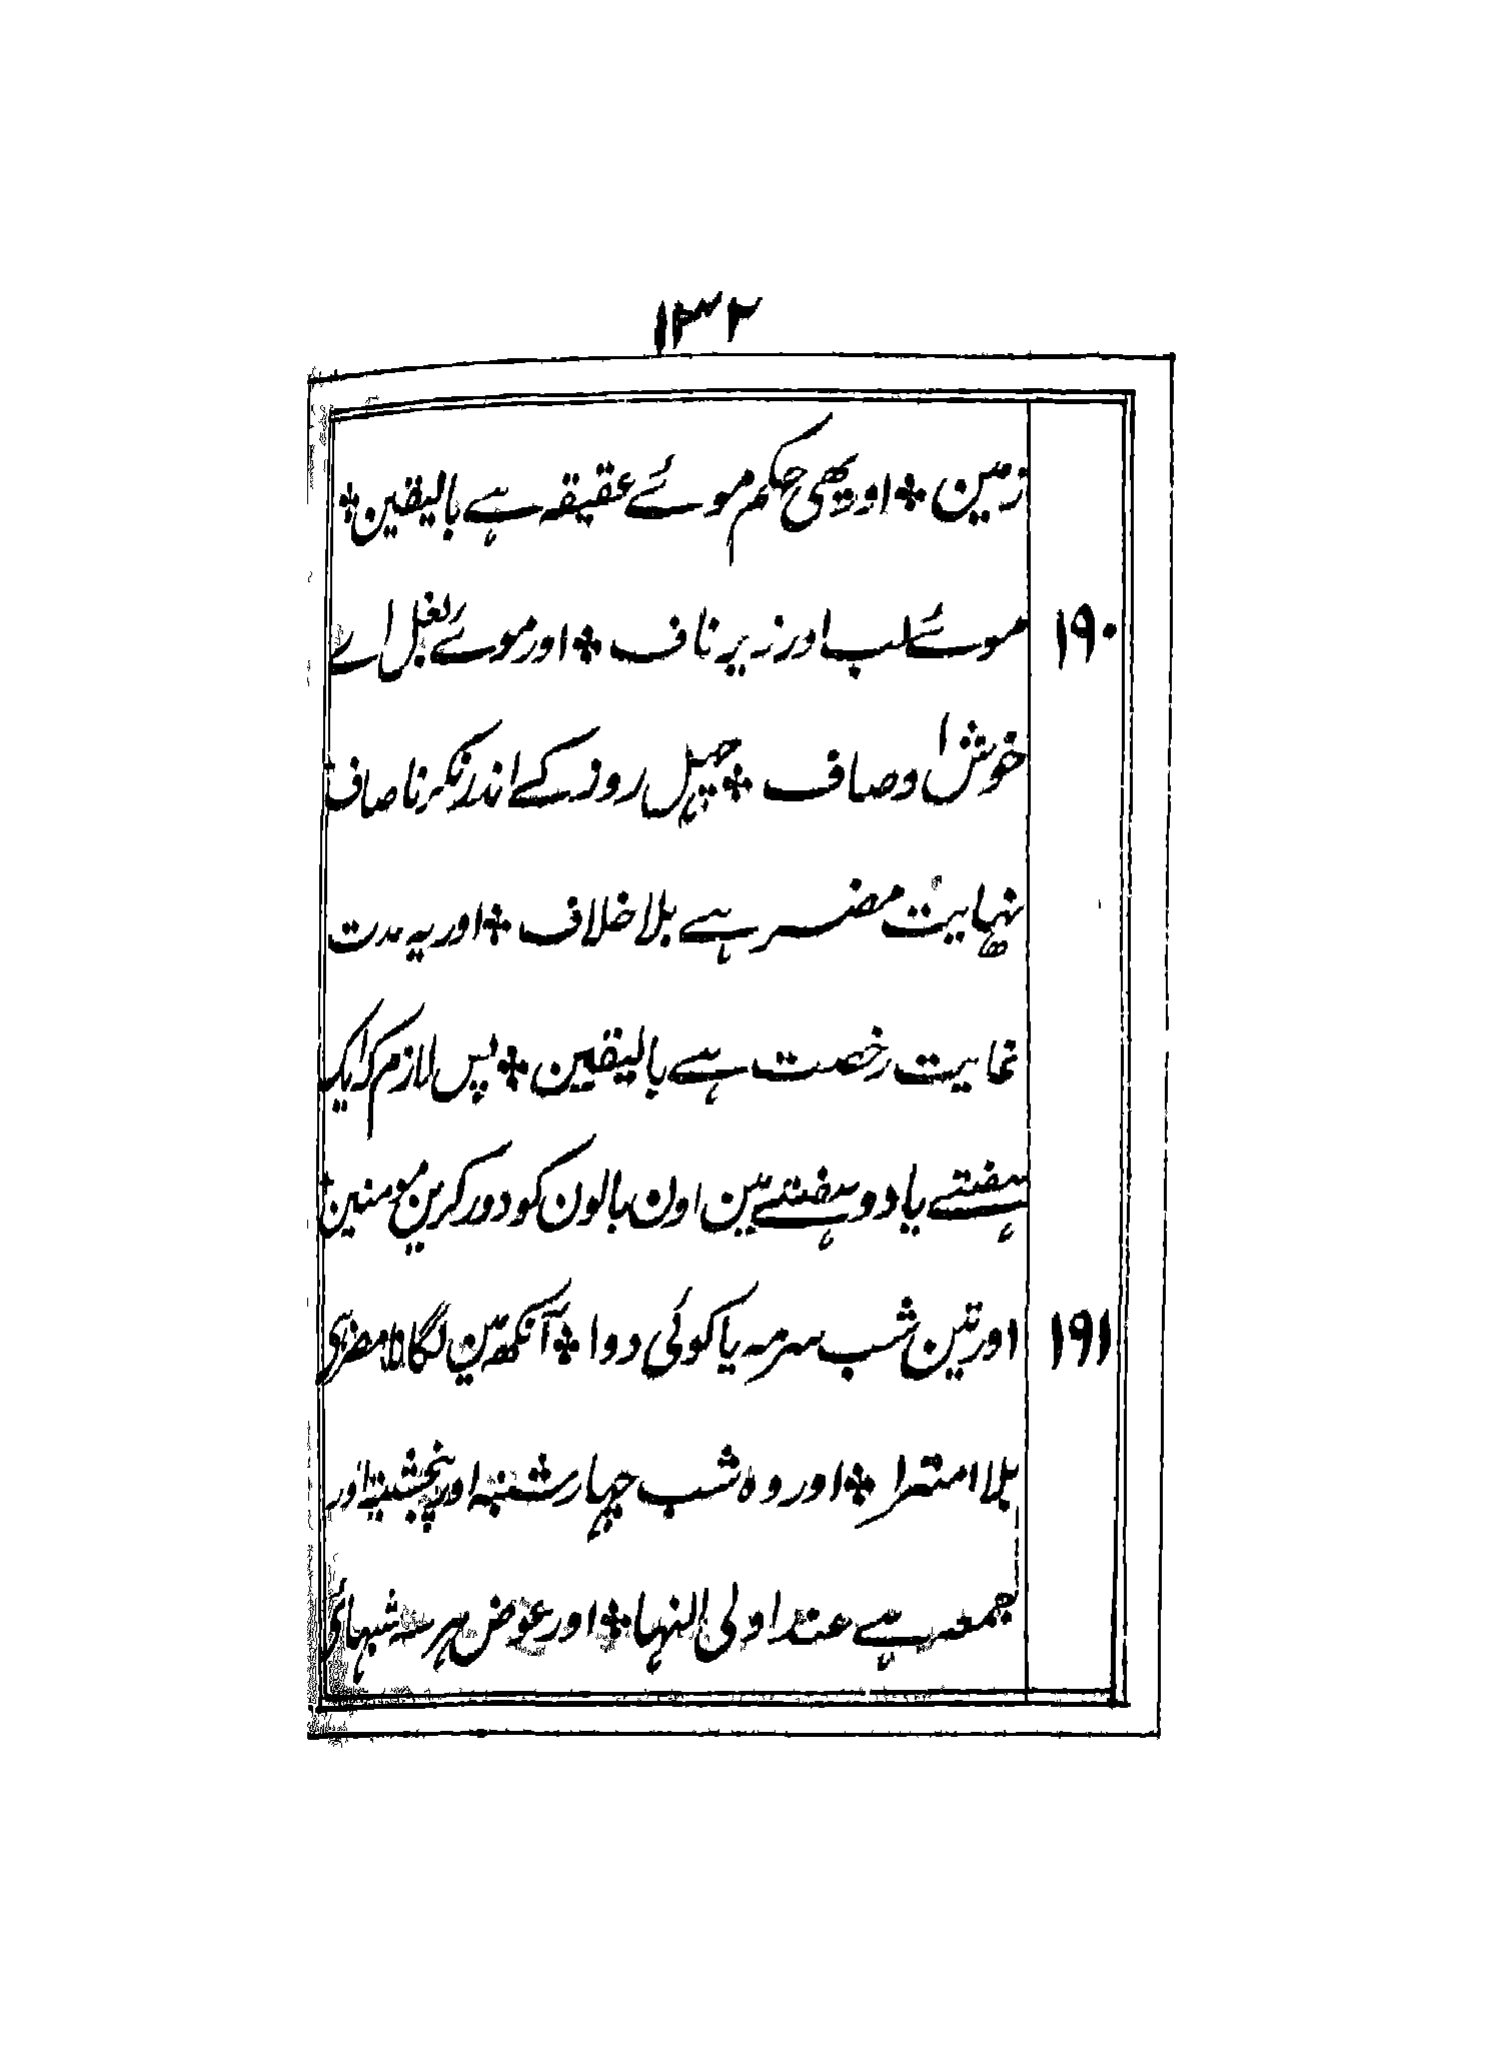 ۱۳۲
زمین ※ اور یہی حکم موئے عقیقہ ہے بالیقین ※
۱۹۰ موئے لب اور زیر ناف ※ اور موئے بغل اے
خوش اوصاف ※ چہل روز کے اندر نکرنا صاف
نہایت مضر ہے بلا خلاف ※ اور یہ مدت
غایت رخصت ہے بالیقین ※ پس لازم کہ ایک
ہفتے یا دو ہفتے مین اون بالون کو دور کرین مومنین
۱۹۱ اور تین شب سرمہ یا کوئی دوا ※ آنکھ مین لگانا مضر ہی
بلا امترا ※ اور وہ شب چہار شنبہ اور پنچشنبہ اور
جمعہ ہے عند اولی النہا ※ اور عوض ہر سہ شبہائے